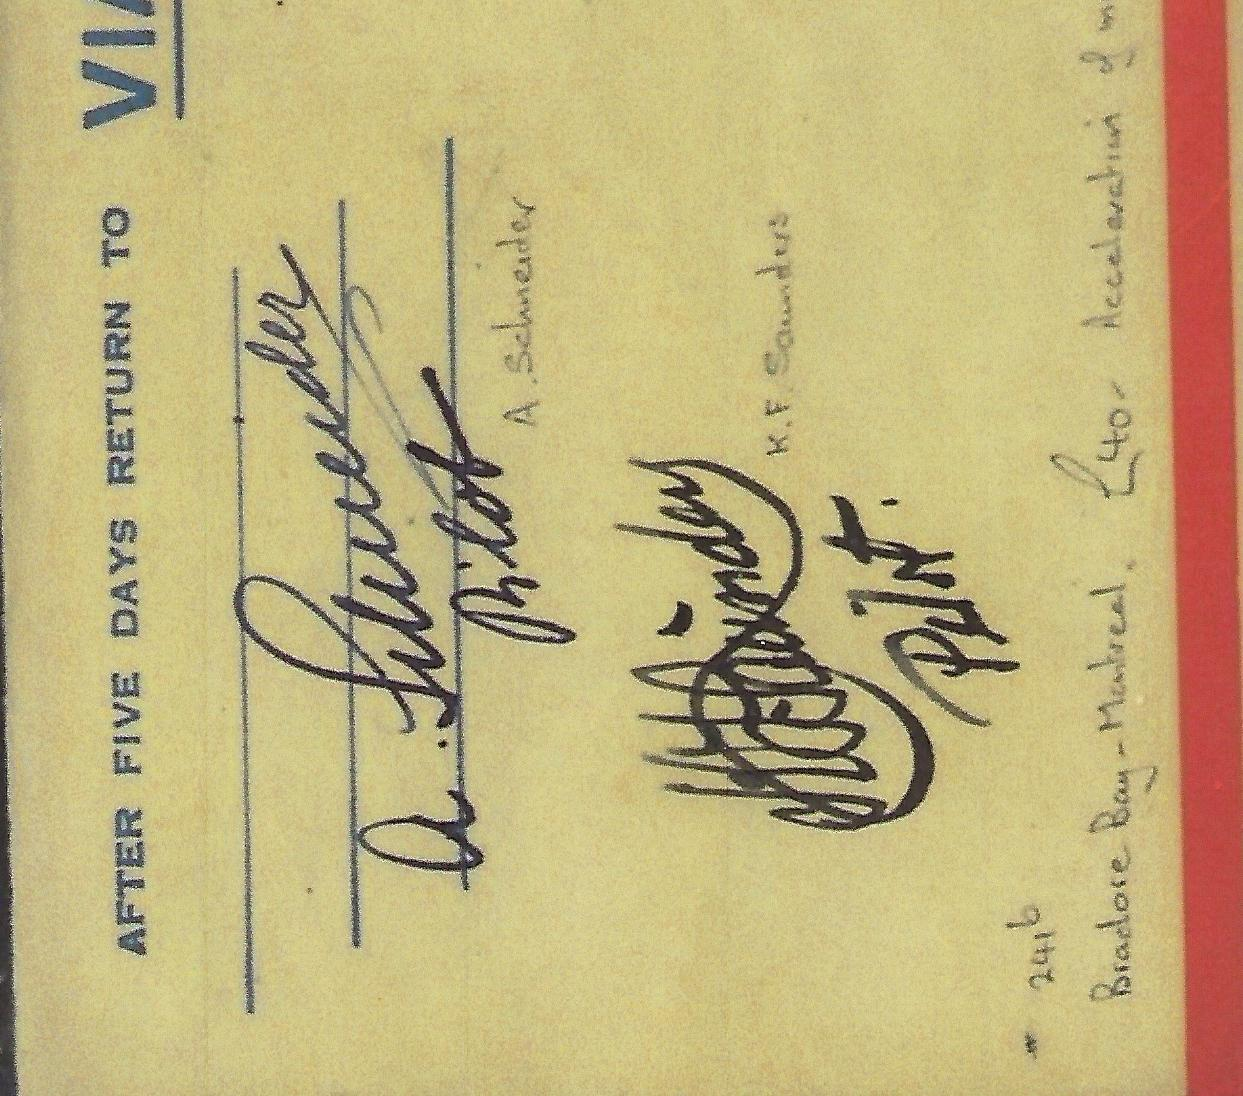 AFTER FIVE DAYS RETURN TO
VIA
A. Schneider
Pilot
A. Schneider
K.F. Saunders
Pilot.
241b
Bradore Bay - Montreal. £40- Acceleration of m